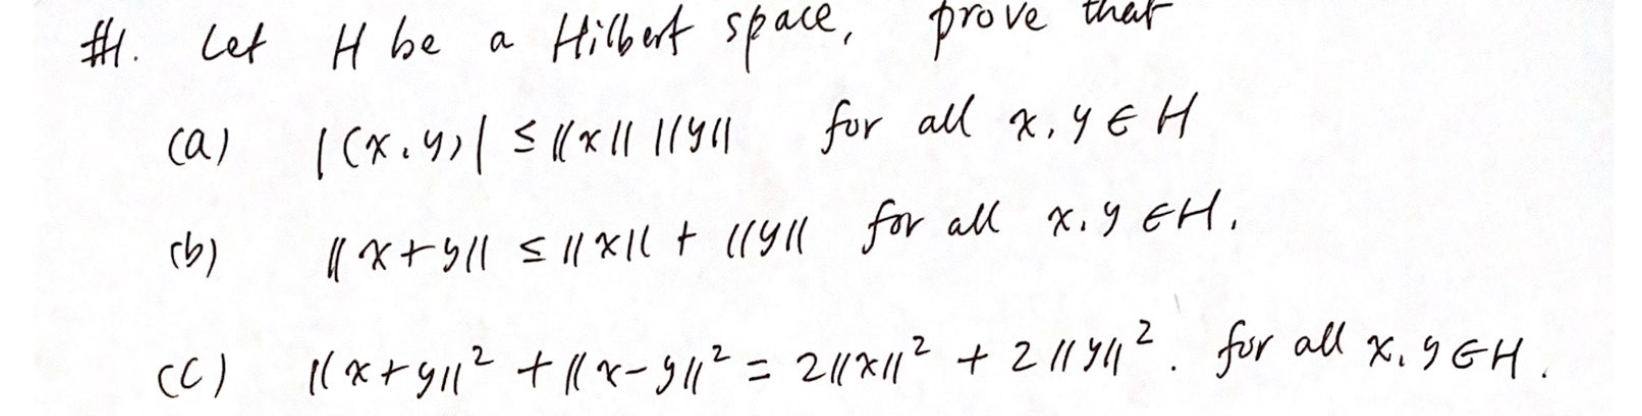 #1. Let H be a Hilbert space, prove that
(a) |(x,y)| ≤ ||x|| ||y|| for all x, y ∈ H
(b) ||x+y|| ≤ ||x|| + ||y|| for all x, y ∈ H.
(c) ||x+y||² + ||x-y||² = 2||x||² + 2||y||². for all x, y ∈ H.